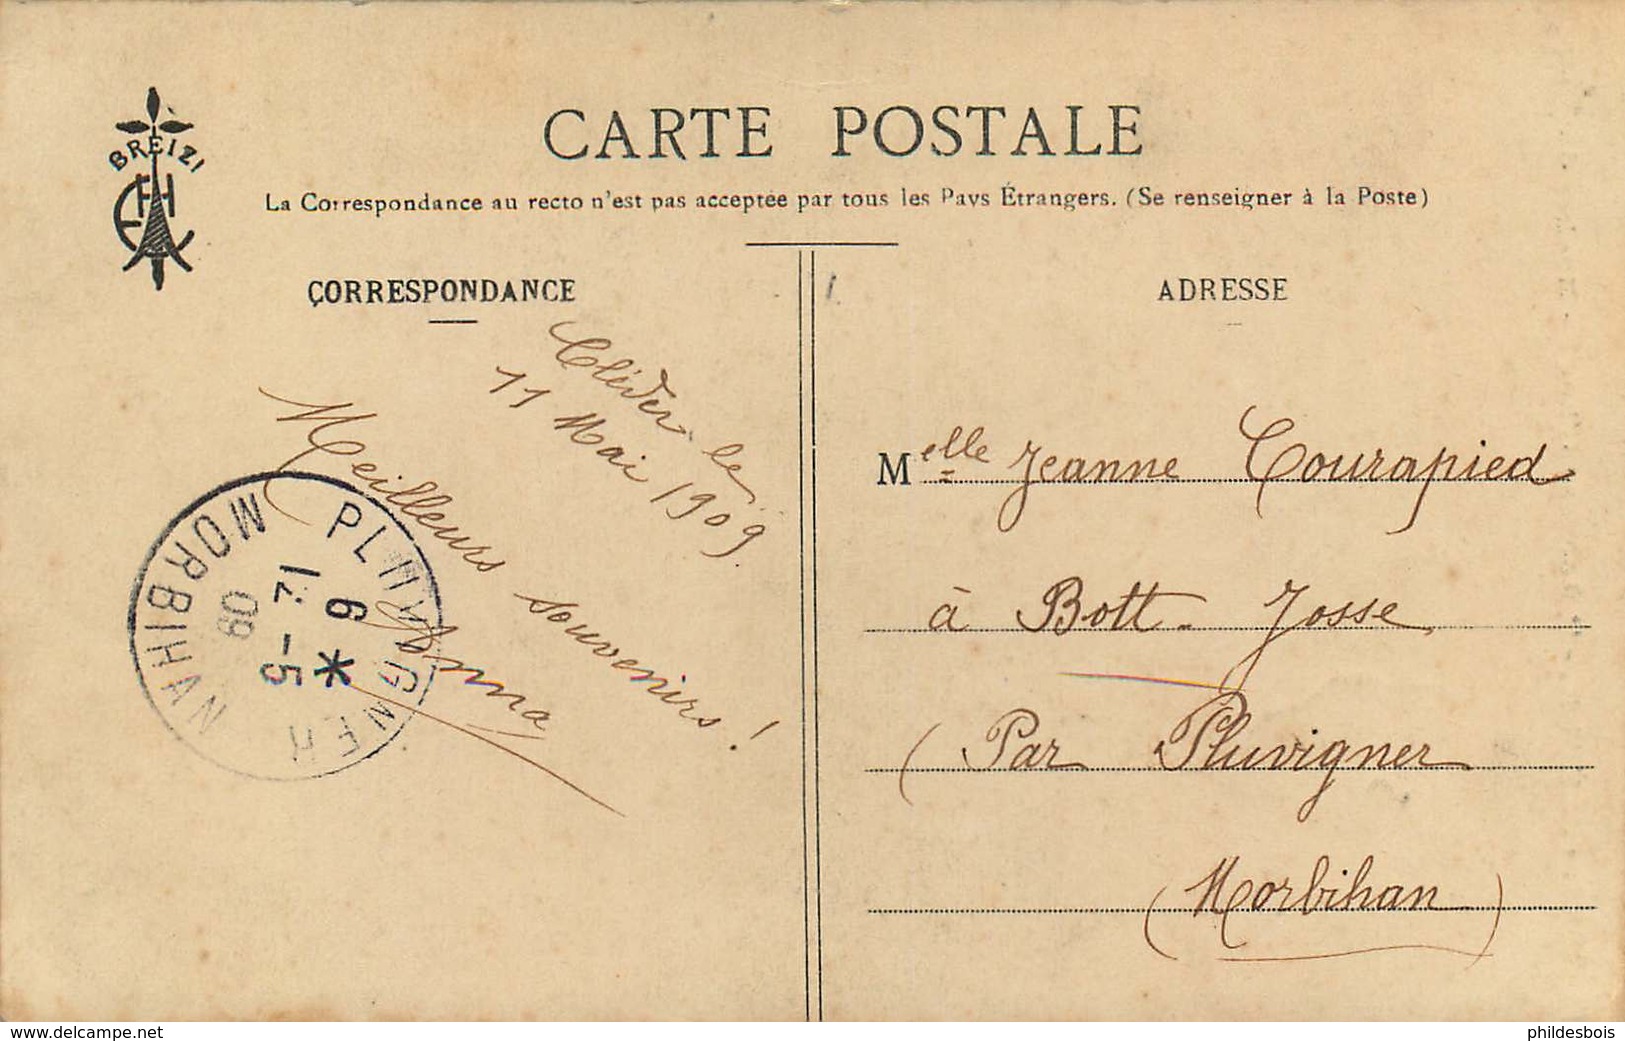 BREIZ
CARTE POSTALE
La Correspondance au recto n'est pas acceptée par tous les Pays Étrangers. (Se renseigner à la Poste)
CORRESPONDANCE
Cléder le
11 Mai 1909.
Meilleurs souvenirs!
Anna
PLUVIGNER
MORBIHAN
6 *
12 -5
09
ADRESSE
Melle Jeanne Courapied
à Bott-Josse
(Par Pluvigner
(Morbihan)
www.delcampe.net
phildesbois